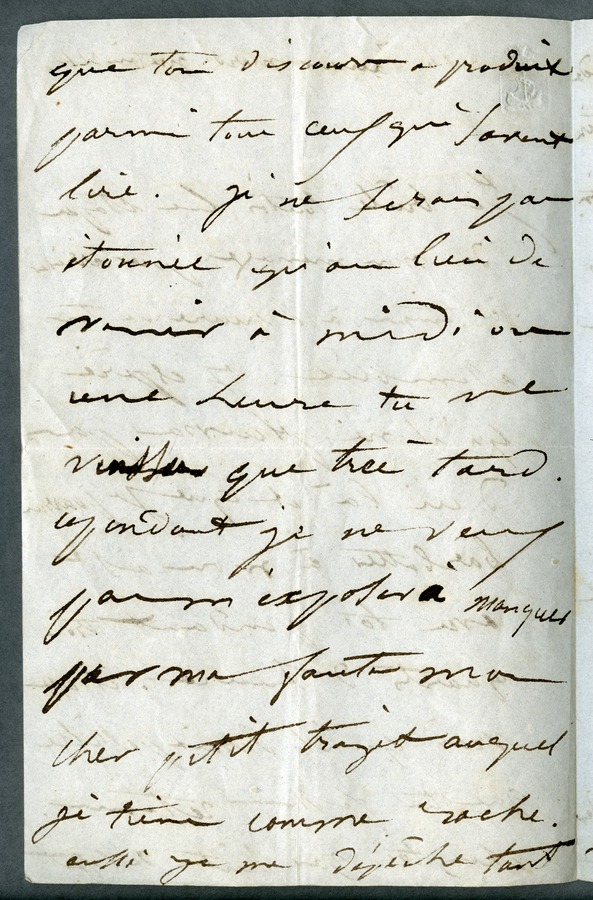 que ton discours a produit
parmi tous ceux qui savent
lire. je ne serais pas
étonnée qu'au lieu de
venir à midi ou
une heure tu ne
vinsses que très tard.
cependant je ne veux
pas m'exposer à manquer
par ma faute mon
cher petit trajet auquel
je tiens comme roche.
aussi je me dépêche tant